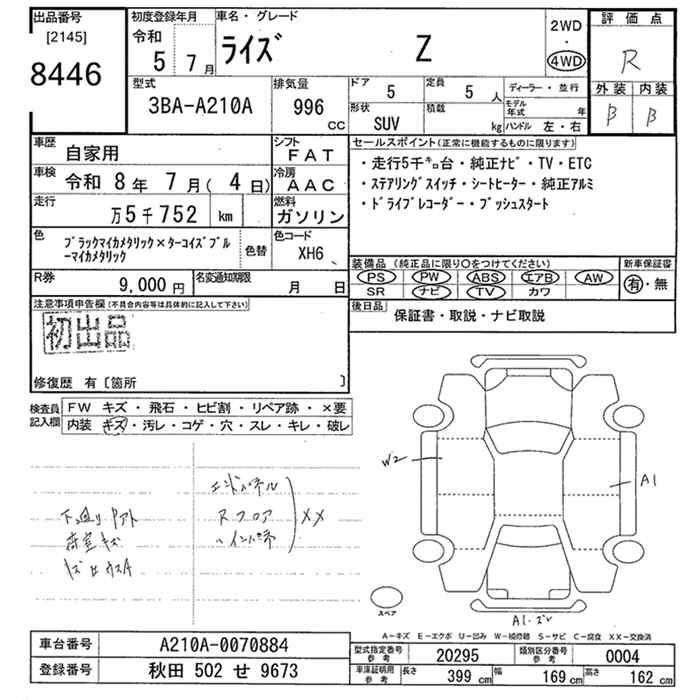 出品番号
[2145]
8446
初度登録年月
令和
5 7月
車名・グレード
ライズ Z
2WD
・
4WD
評価点
R
外装 内装
B B
型式
3BA-A210A
排気量
996
CC
ドア
5
定員
5 人
形状
SUV
積載
kg
ディーラー・並行
モデル年式 年
ハンドル 左・右
車歴
自家用
シフト
FAT
車検
令和 8年 7月( 4日)
冷房
AAC
走行
万5千752 km
燃料
ガソリン
色
ブラックマイカメタリック×ターコイズブル
ーマイカメタリック
色替
色コード
XH6
R券
9,000 円
名変通知期限
月 日
セールスポイント(正常に機能するものに限ります)
・走行5千㌔台・純正ナビ・TV・ETC
・ステアリングスイッチ・シートヒーター・純正アルミ
・ドライブレコーダー・プッシュスタート
装備品 (純正品に限り○をつけてください)
PS PW ABS エアB AW
SR ナビ TV カワ
新車保証書
有・無
後日品
保証書・取説・ナビ取説
注意事項申告欄(不具合内容等は具体的に記入して下さい)
初出品
修復歴 有〔箇所 〕
検査員
記入欄
FW キズ・飛石・ヒビ割・リペア跡・×要
内装 キズ・汚レ・コゲ・穴・スレ・キレ・破レ
エンドパネル
Rフロア
XX
下廻り
荷室キズ
W2
A1
スペア
A1・
A-キズ E-エクボ U-凹み W-補修跡 S-サビ C-腐食 XX-交換済
車台番号
A210A-0070884
登録番号
秋田 502 せ 9673
型式指定番号
参考
20295
類別区分番号
参考
0004
車庫証明用
参考
長さ
399 cm
幅
169 cm
高さ
162 cm